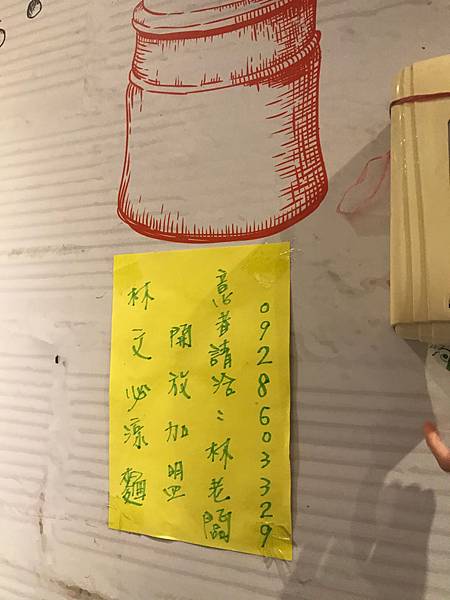 林文必涼麵
開放加盟
意者請洽：林老闆
0928603329